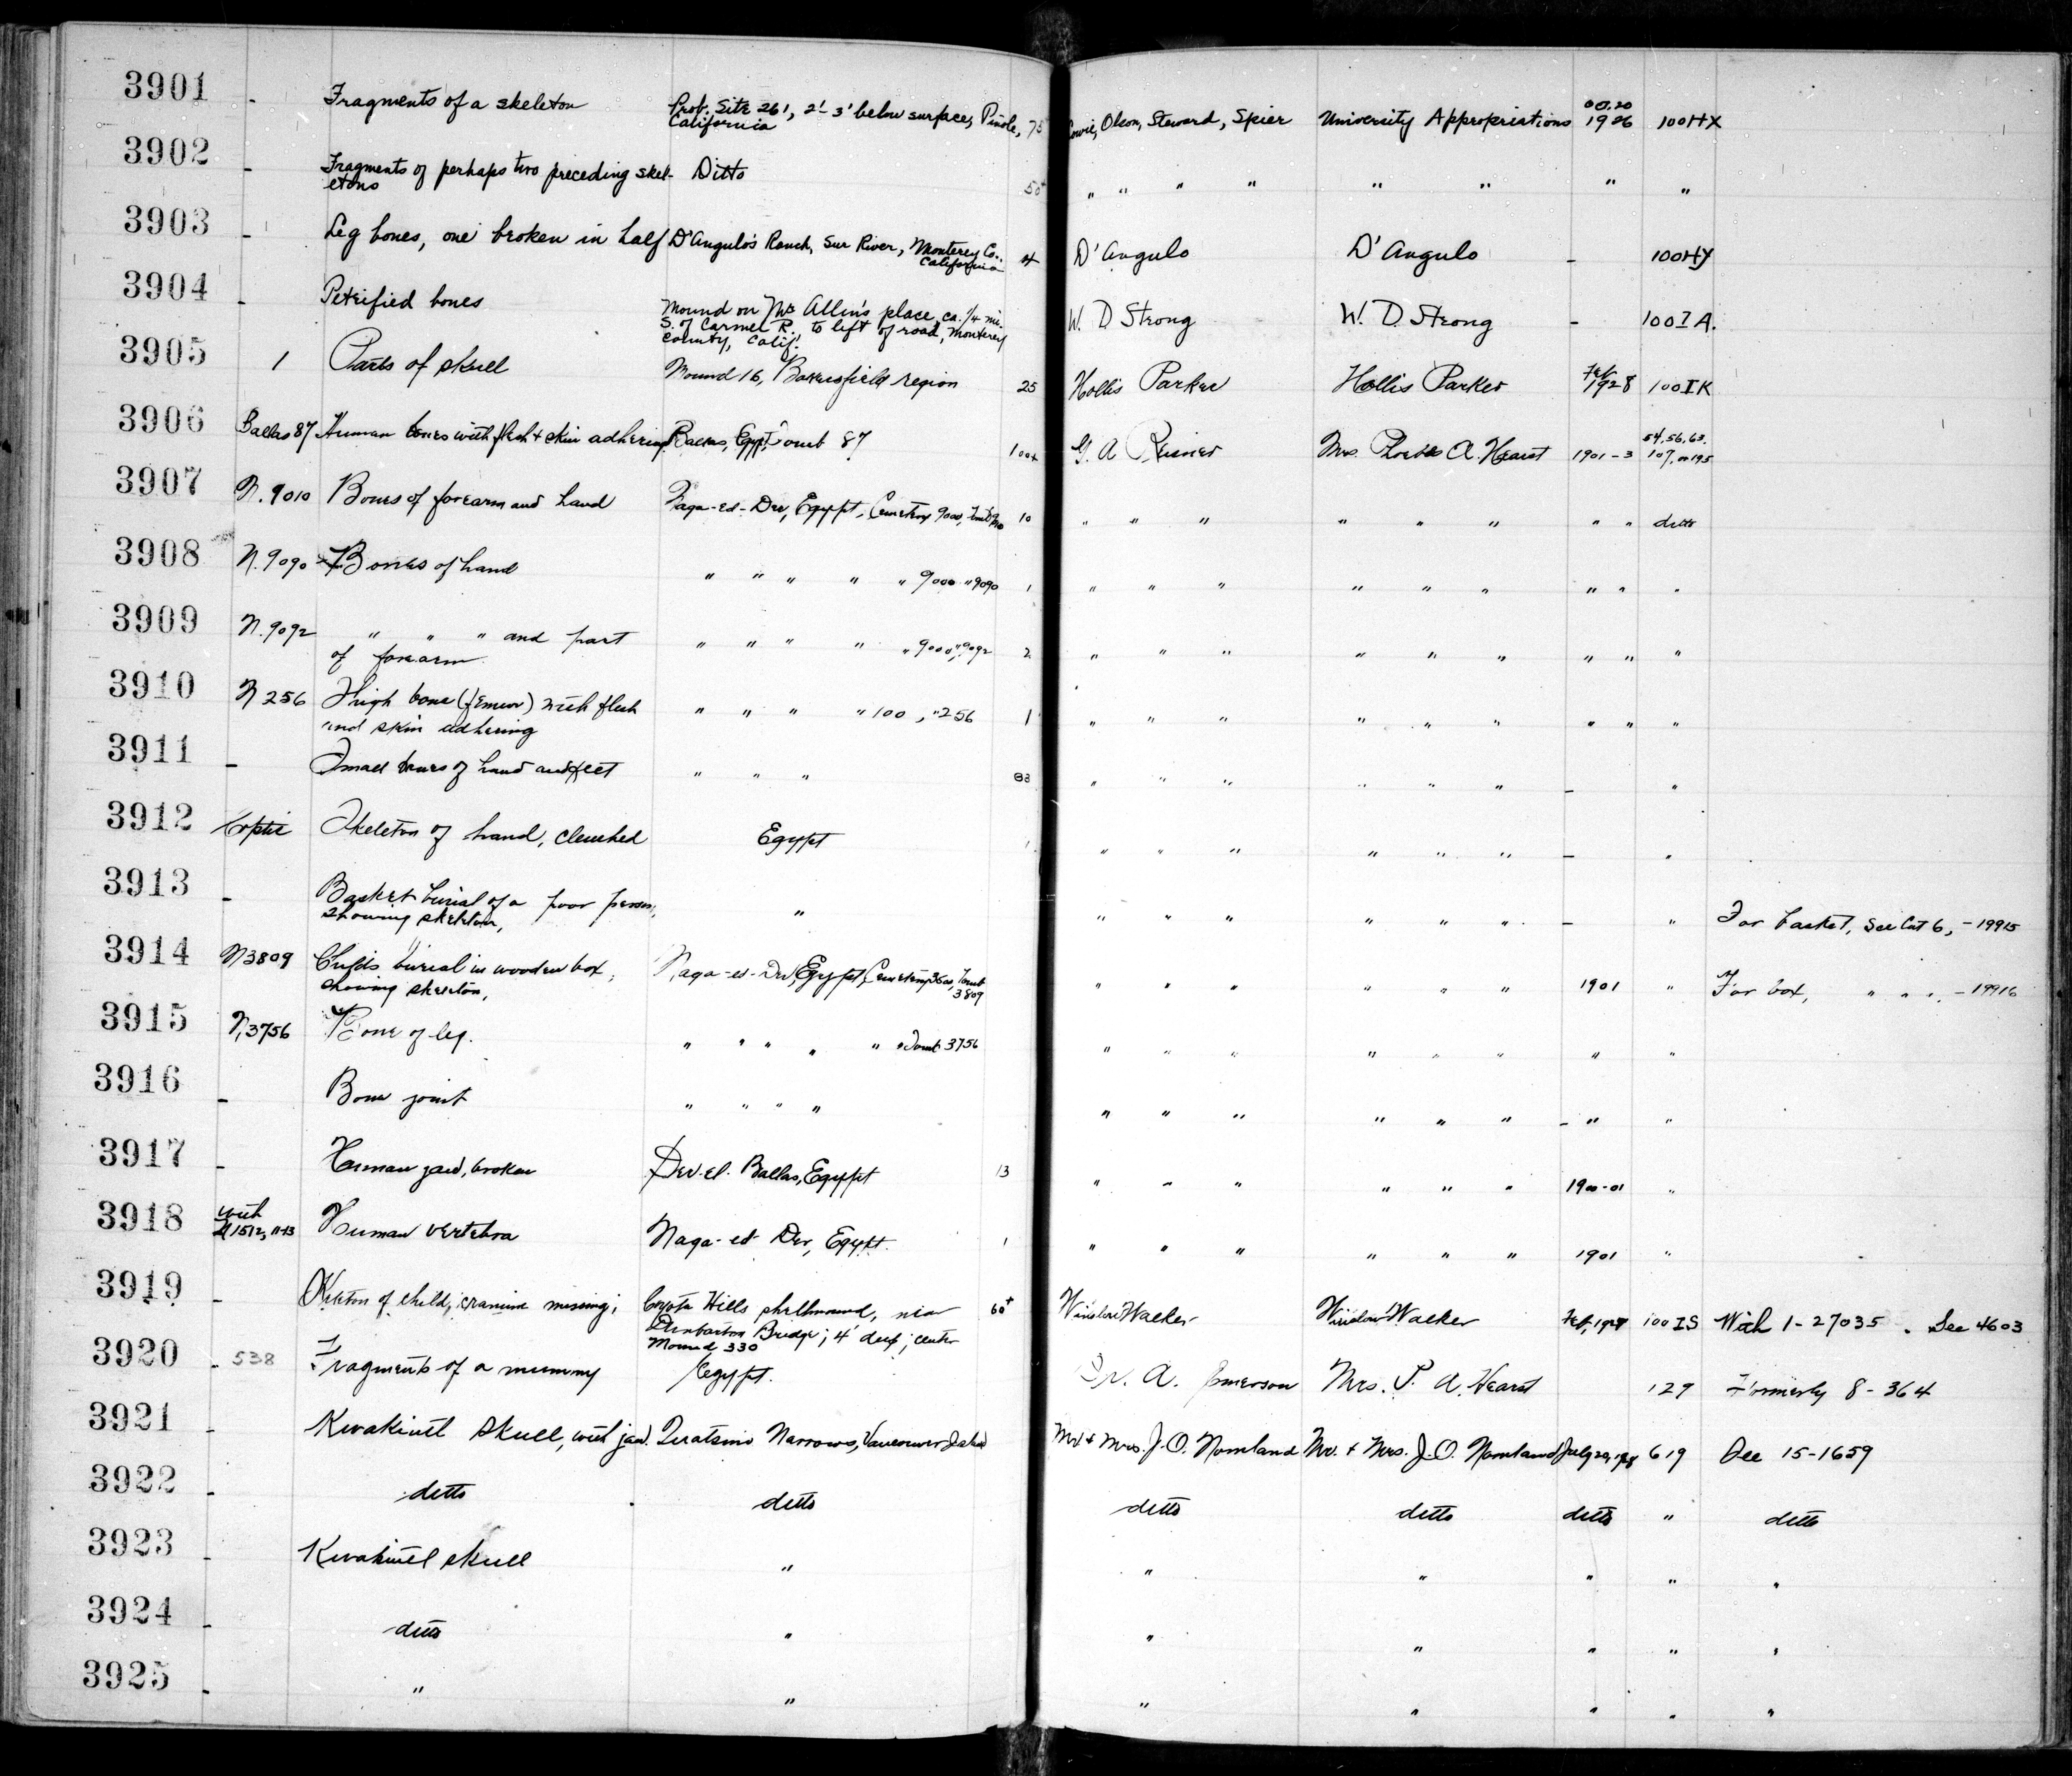 3901 - Fragments of a skeleton Prob. Site 261, 2'-3' below surface, Pinole, 75 Olson, Steward, Spier University Appropriations 1926 100HX
California
3902 - Fragments of perhaps two preceding skel- Ditto 50+ " " " " " " " "
etons
3903 - Leg bones, one broken in half D'Angulo's Ranch, Sur River, Monterey Co., 4 D'Angulo D'Angulo - 100HY
California
3904 - Petrified bones Mound on Mr Allin's place ca. 1/4 mi. W. D Strong W. D. Strong - 100IA.
S. of Carmel R. to left of road, Monterey
County, Calif.
3905 1 Parts of skull Mound 16, Bakersfield region 25 Hollis Parker Hollis Parker Feb 1928 100IK
3906 Ballas 87 Human bones with flesh + skin adhering Ballas, Egypt, Tomb 87 100+ G. A Reisner Mrs. Phoebe A. Hearst 1901-3 54, 56, 63.
107, or 195
3907 N. 9010 Bones of forearm and hand Naga-ed-Der, Egypt, Cemetery 9000, 10 " " " " " " " " ditto
3908 N. 9090 Bones of hand " " " " " 9000 " 9090 1 " " " " " " " " "
3909 N. 9092 " " " and part " " " " " 9000, " 9092 2 " " " " " " " " "
of forearm
3910 N 256 Thigh bone (femur) with flesh " " " " 100, " 256 1 " " " " " " " " "
and skin adhering
3911 - Small bones of hand and feet " " " 83 " " " " " " - "
3912 Coptic Skeleton of hand, clenched Egypt 1 " " " " " " - "
3913 - Basket burial of a poor person, " " " " " " " - " For basket, See Cat 6, -19915
showing skeleton,
3914 N3809 Child's burial in wooden box, Naga-ed-Der, Egypt, Cemetery 3500, Tomb " " " " " " 1901 " For box, " " ", -19916
showing skeleton, 3809
3915 N, 3756 Bone of leg. " " " " " " Tomb 3756 " " " " " " " "
3916 - Bone joint " " " " " " " " " " - " "
3917 - Human jaw, broken Der-el-Ballas, Egypt 13 " " " " " " 1900-01 "
3918 with Human vertebra Naga-ed-Der, Egypt. 1 " " " " " " 1901 "
3919 - Skeleton of child, cranium missing; Coyote Hills shellmound, near 60+ Winslow Walker Winslow Walker Feb, 1928 100IS With 1-27035. See 4603
Dumbarton Bridge; 4' deep; center
Mound 330
3920 - 538 Fragments of a mummy Egypt. A. Emerson Mrs. P. A. Hearst 129 Formerly 8-364
3921 - Kwakiutl Skull, with jaw. Quatsino Narrows, Vancouver Island Mr + Mrs. J. O. Nomland Mr. + Mrs. J. O. Nomland July 20, 1928 619 See 15-1659
3922 - ditto ditto ditto ditto ditto " ditto
3923 - Kwakiutl skull " " " " " "
3924 - ditto " " " " " "
3925 - " " " " " " "